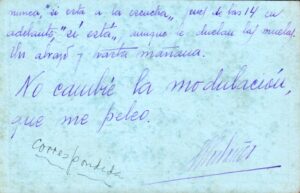 nunca, "si está a la escucha", pues de las 14 en
adelante, "si está", aunque le duelan las muelas.
Un abrazo y hasta mañana.
No cambie la modulación,
que me peleo.
correspondida